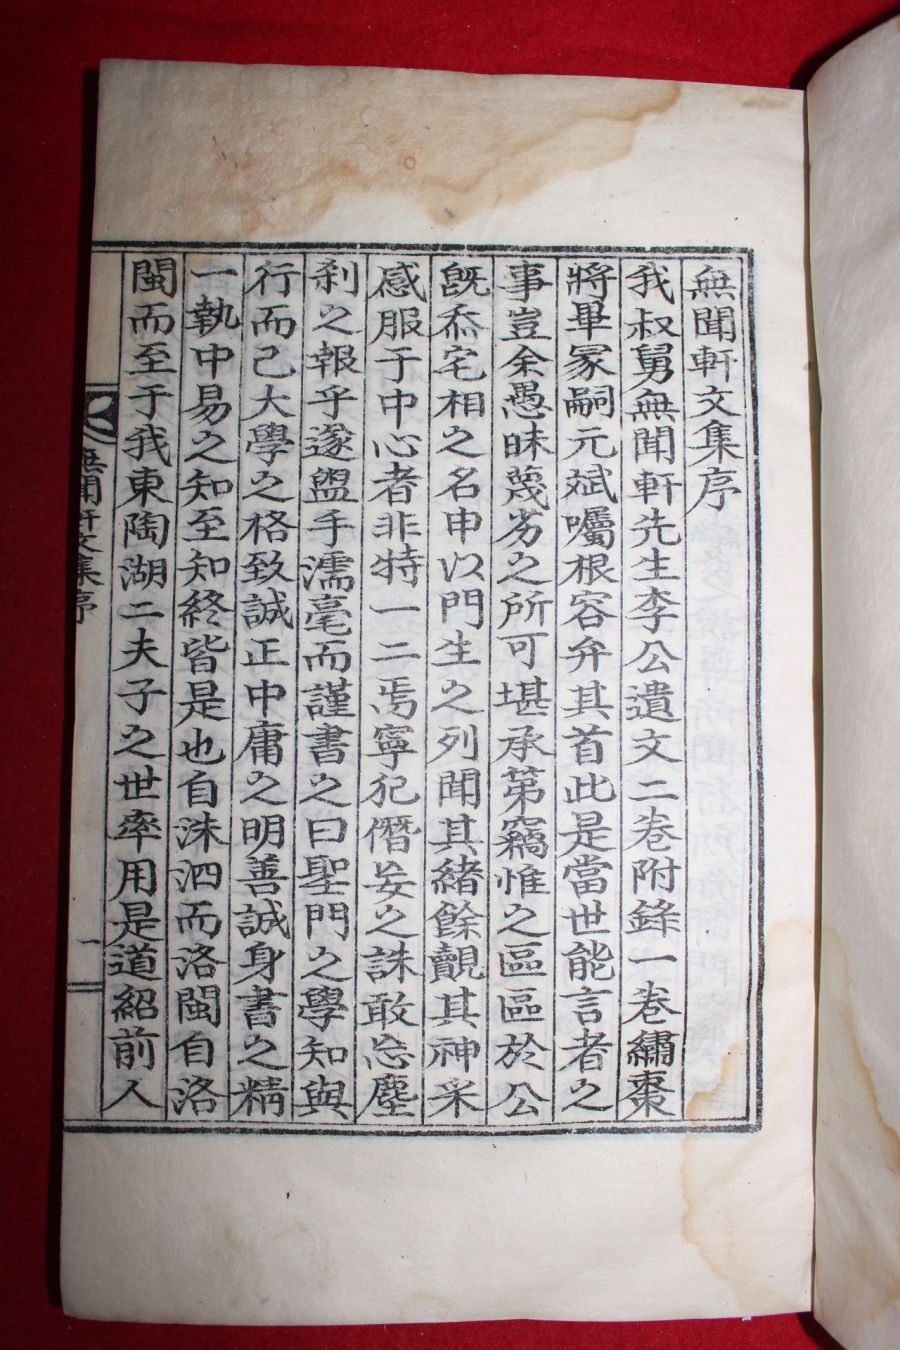 無聞軒文集序
我叔舅無聞軒先生李公遺文二卷附錄一卷繡棗
將畢冢嗣元斌囑根容弁其首此是當世能言者之
事豈余愚昧蔑劣之所可堪承第竊惟之區區於公
旣忝宅相之名申以門生之列聞其緖餘覿其神采
感服于中心者非特一二焉寧犯僭妄之誅敢忘塵
刹之報乎遂盥手濡毫而謹書之曰聖門之學知與
行而已大學之格致誠正中庸之明善誠身書之精
一執中易之知至知終皆是也自洙泗而洛閩自洛
閩而至于我東陶湖二夫子之世率用是道紹前人
無聞軒文集序
一